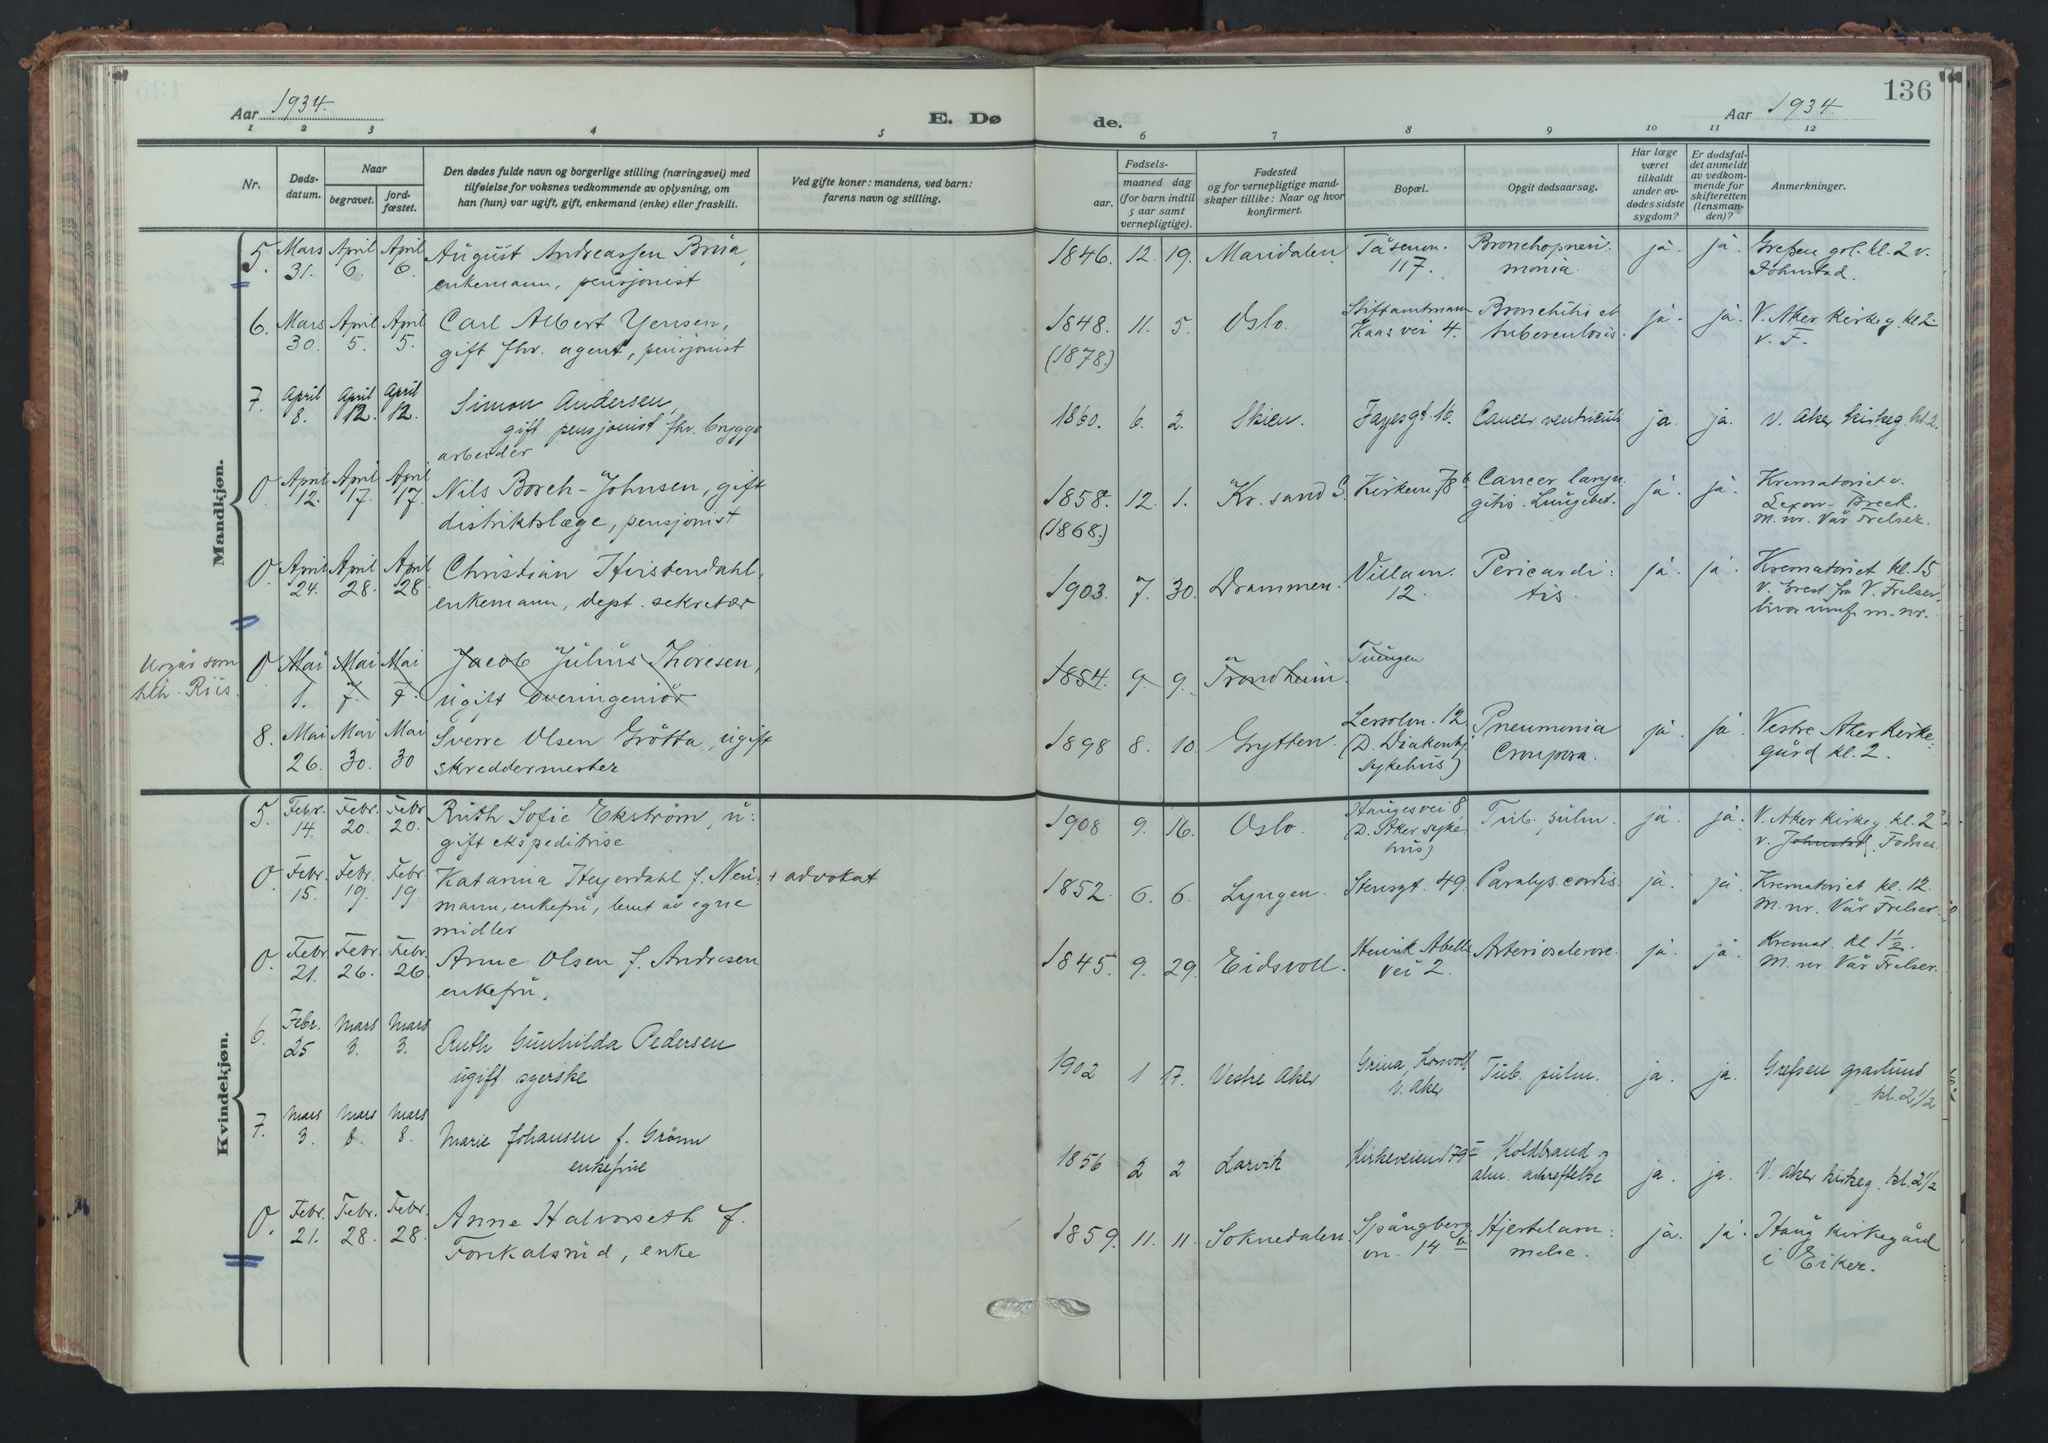 136
Aar 1934.
E. Dø
de.
Aar 1934.
1 2 3 4 5 6 7 8 9 10 11 12
Nr.
Døds-
datum.
Naar
begravet.
jord-
fæstet.
Den dødes fulde navn og borgerlige stilling (næringsvei) med
tilføielse for voksnes vedkommende av oplysning, om
han (hun) var ugift, gift, enkemand (enke) eller fraskilt.
Ved gifte koner: mandens, ved barn:
farens navn og stilling.
Fødsels-
aar.
maaned dag
(for barn indtil
5 aar samt
vernepligtige).
Fødested
og for vernepligtige mand-
skaper tillike: Naar og hvor
konfirmert.
Bopæl.
Opgit dødsaarsag.
Har læge
været
tilkaldt
under av-
dødes sidste
sygdom?
Er dødsfal-
det anmeldt
av vedkom-
mende for
skifteretten
(lensman-
den)?
Anmerkninger.
Mandkjøn.
5. Mars 31. April 6. April 6. August Andreassen Brua,
enkemann, pensjonist
1846. 12. 19. Maridalen. Tåsenvn. 117. Bronchopneu:
monia. ja. ja. Grefsen grl. kl. 2 v.
Johnstad.
6. Mars 30. April 5. April 5. Carl Albert Jensen,
gift fhv. agent, pensjonist
1848. (1878.) 11. 5. Oslo. Stiftamtmann
Kaas vei 4. Bronchitis et
tuberculosis. ja. ja. V. Aker kirkeg. kl 2
v. F.
7. April 8. April 12. April 12. Simon Andersen,
gift pensjonist fhv. brygge
arbeider
1860. 6. 2. Skien. Fayesgt. 16. Cancer ventriculi ja. ja. V. Aker kirkeg. kl. 2.
0. April 12. April 17. April 17. Nils Borch-Johnsen, gift
distriktslæge, pensjonist
1858. (1868.) 12. 1. Kr. sand S. Kirkevn. 78 b Cancer laryn
gitis. Lungebet. ja. ja. Krematoriet v.
Lexow-Breck.
M. nr. Vår Frelser.
0. April 24. April 28. April 28. Christian Hvistendahl,
enkemann, dept. sekretær
1903. 7. 30. Drammen. Villavn.
12. Pericardi:
tis. ja. ja. Krematoriet kl. 15
V. Grest fra V. Frelser,
m. nr.
Utgår som
hth. Riis.
0 Mai 1. Mai 7. Mai 7. Jacob Julius Thoresen,
ugift overingeniør
1854. 9. 9. Trondheim. Tuengen
8. Mai 26. Mai 30. Mai 30 Sverre Olsen Grøtta, ugift
skreddermester
1898 8. 10. Grytten. Lersolvn. 12
(D. Diakonhj.
sykehus) Pneumonia
Crouposa. ja. ja. Vestre Aker Kirke:
gård kl. 2.
Kvindekjøn.
5. Febr. 14. Febr. 20. Febr. 20. Ruth Sofie Ekström, u:
gift ekspeditrise
1908 9. 16. Oslo. Haugesvei 8
(D. Aker syke:
hus) Tub. pulm. ja. ja. V. Aker kirkeg. kl. 2
v. Johnstad,
0. Febr. 15. Febr. 19. Febr. 19. Katarina Heyerdahl f. Neu: + advokat
mann, enkefru, levet av egne
midler
1852. 6. 6. Lyngen. Stensgt. 49. Paralys. cordis ja. ja. Krematoriet kl. 12.
M. nr. Vår Frelser.
0. Febr. 21. Febr. 26. Febr. 26. Anne Olsen f. Andresen
enkefru,
1845. 9. 29. Eidsvoll. Henrik Abells
vei 2. Arteriosclerose. ja. ja. Kremat. kl 1 1/2.
M. nr. Vår Frelser.
6. Febr. 25 Mars 3. Mars 3. Ruth Gunhilda Pedersen
ugift syerske
1902 1 17. Vestre Aker Grina, Korsvoll
V. Aker Tub. pulm. ja. ja. Grefsen gravlund
kl. 2 1/2
7. Mars 3. Mars 8. Mars 8. Marie Johansen f. Grönn
enkefrue
1856 2 2 Larvik Kirkeveien 179 II Koldbrand og
alm. avkreftelse ja. ja. V. Aker kirkeg. kl. 2 1/2
0. Febr. 21. Febr. 28. Febr. 28. Anne Halvorseth f.
Forikalsrud, enke
1859. 11. 11. Soknedalen. Spångberg
vn. 14 b Hjertelam:
melse. ja. ja. Haug kirkegård
i Eiker.